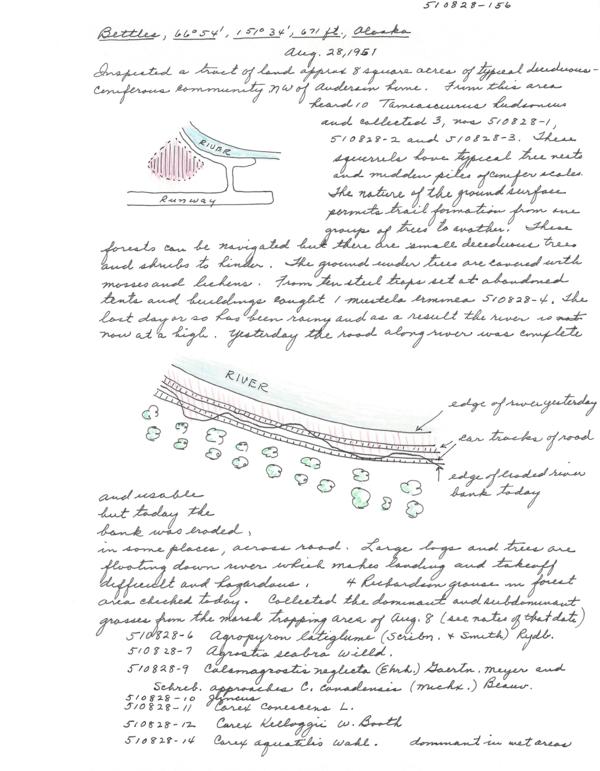 510828-156
Bettles, 66°54', 151°34', 671 ft., Alaska
Aug. 28, 1951
Inspected a tract of land approx 8 square acres of typical deciduous-
coniferous community NW of Anderson home. From this area
heard 10 Tamiasciurus hudsonicus
and collected 3, nos 510828-1,
510828-2 and 510828-3. These
squirrels have typical tree nests
and midden piles of conifer scales.
The nature of the ground surface
permits trail formation from one
group of trees to another. These
RIVER
Runway
forests can be navigated but there are small deciduous trees
and shrubs to hinder. The ground under trees are covered with
mosses and lichens. From ten steel traps set at abandoned
tents and buildings caught 1 mustela erminea 510828-4. The
last day or so has been rainy and as a result the river is not
now at a high. Yesterday the road along river was complete
RIVER
edge of river yesterday
car tracks of road
edge of eroded river
bank today
and usable
but today the
bank was eroded,
in some places, across road. Large logs and trees are
floating down river which makes landing and takeoff
difficult and hazardous. 4 Richardson grouse in forest
area checked today. Collected the dominant and subdominant
grasses from the marsh trapping area of Aug. 8 (see notes of that date)
510828-6 Agropyron latiglume (Scribn. & Smith) Rydb.
510828-7 Agrostis scabra Willd.
510828-9 Calamagrostis neglecta (Ehrh.) Gaertn. Meyer and
Schreb. approaches C. canadensis (Michx.) Beauv.
510828-10 Juncus
510828-11 Carex canescens L.
510828-12 Carex Kelloggii W. Booth
510828-14 Carex aquatilis Wahl. dominant in wet areas